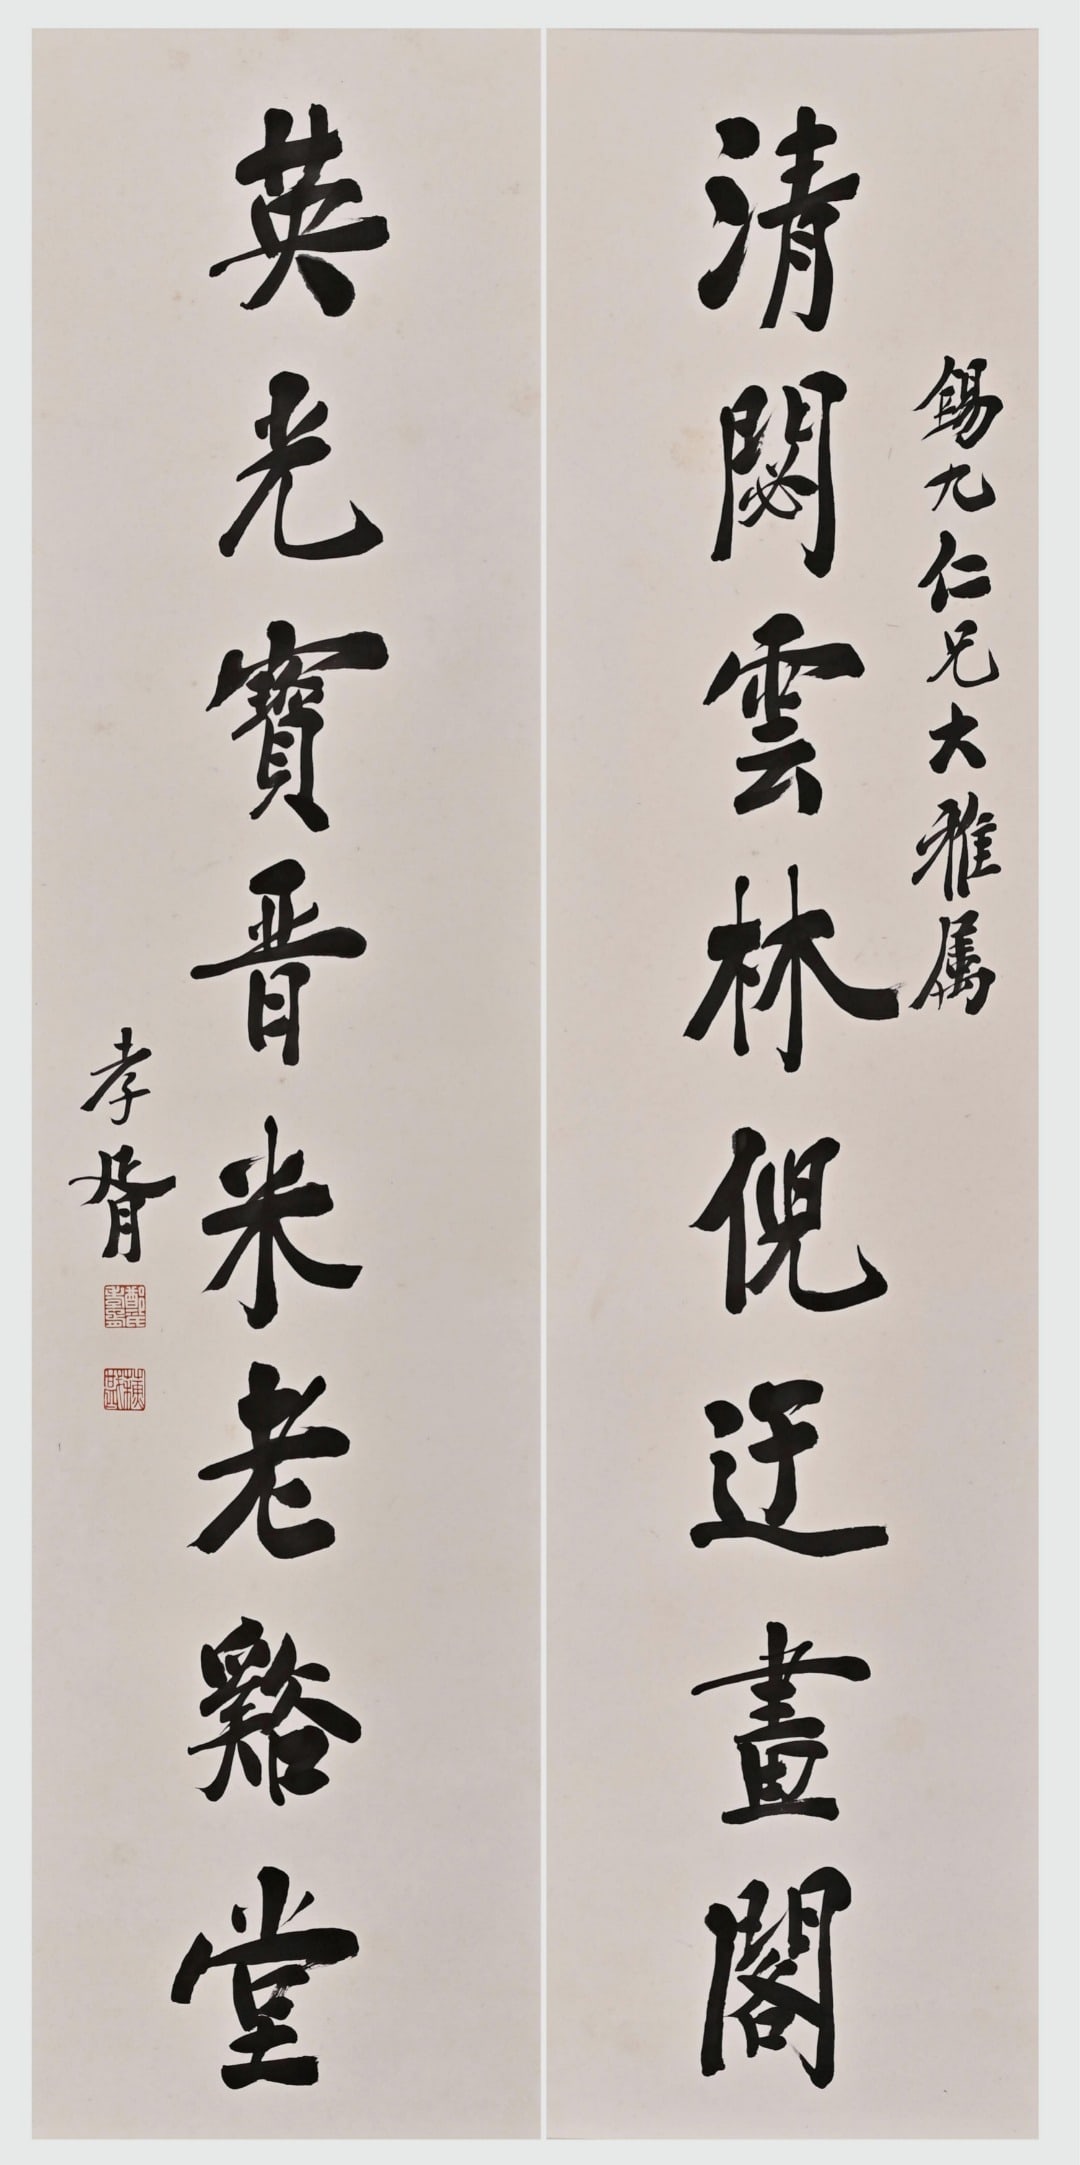 錫九仁兄大雅属
清閟雲林倪迂畫閣
英光寶晉米老谿堂
孝胥